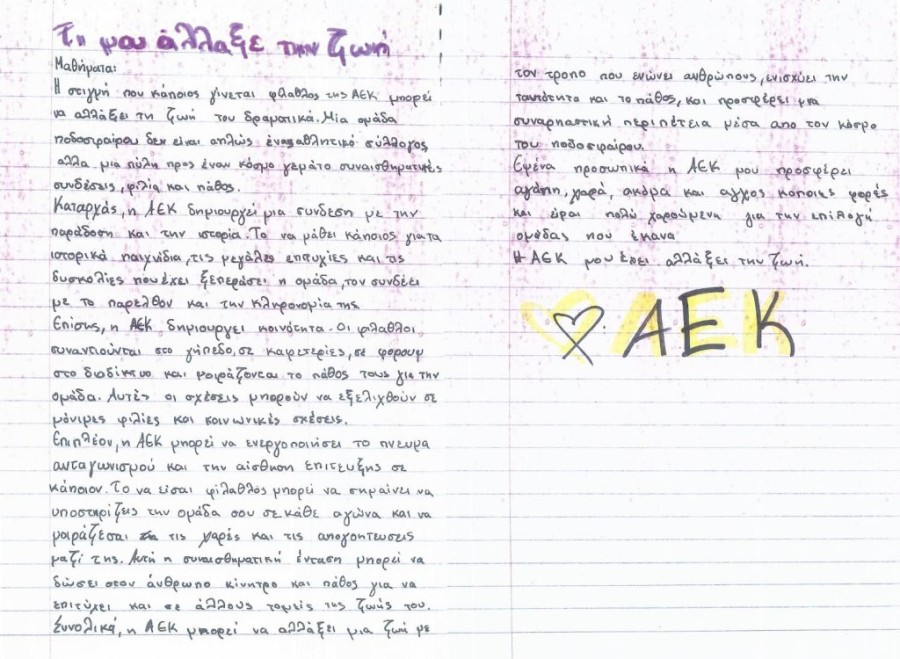 Τι μου άλλαξε την ζωή
Μαθήματα:
Η στιγμή που κάποιος γίνεται φίλαθλος της ΑΕΚ μπορεί
να αλλάξει τη ζωή του δραματικά. Μία ομάδα
ποδοσφαίρου δεν είναι απλώς ένας αθλητικό σύλλογος,
αλλα μια πύλη προς έναν κόσμο γεμάτο συναισθηματικές
συνδέσεις, φιλία και πάθος.
Καταρχάς, η ΑΕΚ δημιουργεί μια συνδεση με την
παράδοση και την ιστορία. Το να μάθει κάποιος για τα
ιστορικά παιχνίδια, τις μεγάλες επιτυχίες και τις
δυσκολίες που έχει ξεπεράσει η ομάδα, τον συνδέει
με το παρελθον και την κληρονομία της
Επίσης, η ΑΕΚ δημιουργει κοινότητα. Οι φιλαθλοι
συναντιούνται στο γήπεδο, σε καφετερίες, σε φορουμ
στο διαδίκτυο και μοιράζονται το πάθος τους για την
ομάδα. Αυτές οι σχέσεις μπορούν να εξελιχθούν σε
μόνιμες φιλίες και κοινωνικές σχέσεις.
Επιπλέον, η ΑΕΚ μπορεί να ενεργοποιήσει το πνευμα
ανταγωνισμού και την αίσθηση επιτευξης σε
κάποιον. Το να είσαι φίλαθλος μπορεί να σημαίνει να
υποστηρίζεις την ομάδα σου σε κάθε αγώνα και να
μοιράζεσαι τις χαρές και τις απογοητωσεις
μαζί της. Αυτή η συναισθηματική ένταση μπορεί να
δώσει στον άνθρωπο κίνητρο και πάθος για να
επιτύχει και σε άλλους τομείς της ζωής του.
Συνολικά, η ΑΕΚ μπορεί να αλλάξει μια ζωή με
τον τροπο που ενώνει ανθρώπους, ενισχύει την
ταυτότητα και το πάθος, και προσφέρει μια
συναρπαστική περιπέτεια μέσα απο τον κόσμο
του ποδοσφαίρου.
Εμένα προσωπικά η ΑΕΚ μου προσφέρει
αγάπη, χαρά, ακόμα και αγχος κάποιες φορές
και είμαι πολύ χαρούμενη για την επιλογή
ομάδας που έκανα
Η ΑΕΚ μου έχει αλλάξει την ζωή.
ΑΕΚ